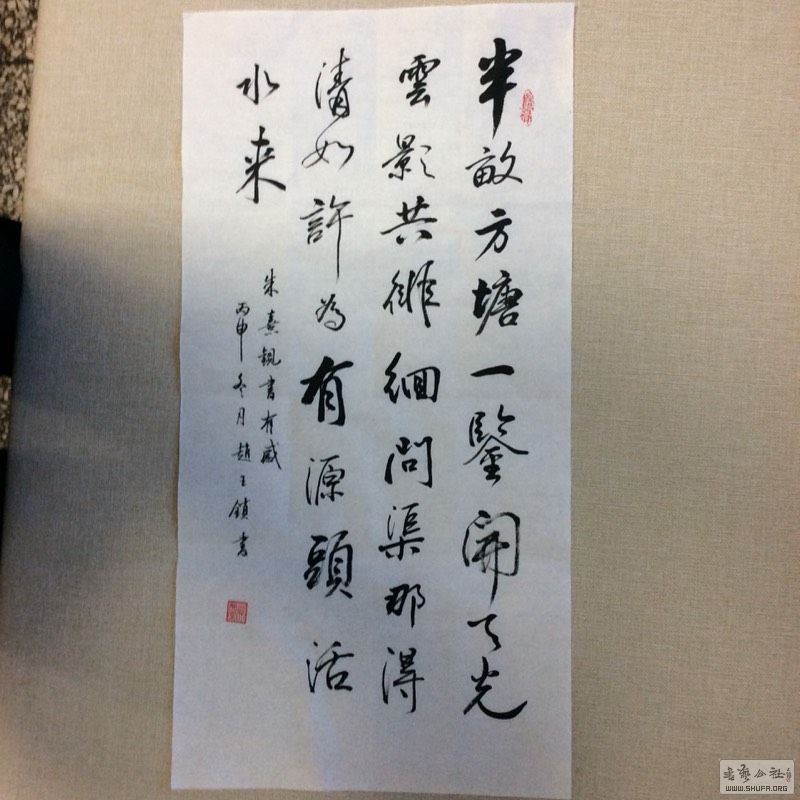 半畝方塘一鑒開天光
雲影共徘徊問渠那得
清如許為有源頭活
水来
朱熹觀書有感
丙申冬月趙玉鎖書
書藝公社
WWW.SHUFA.ORG